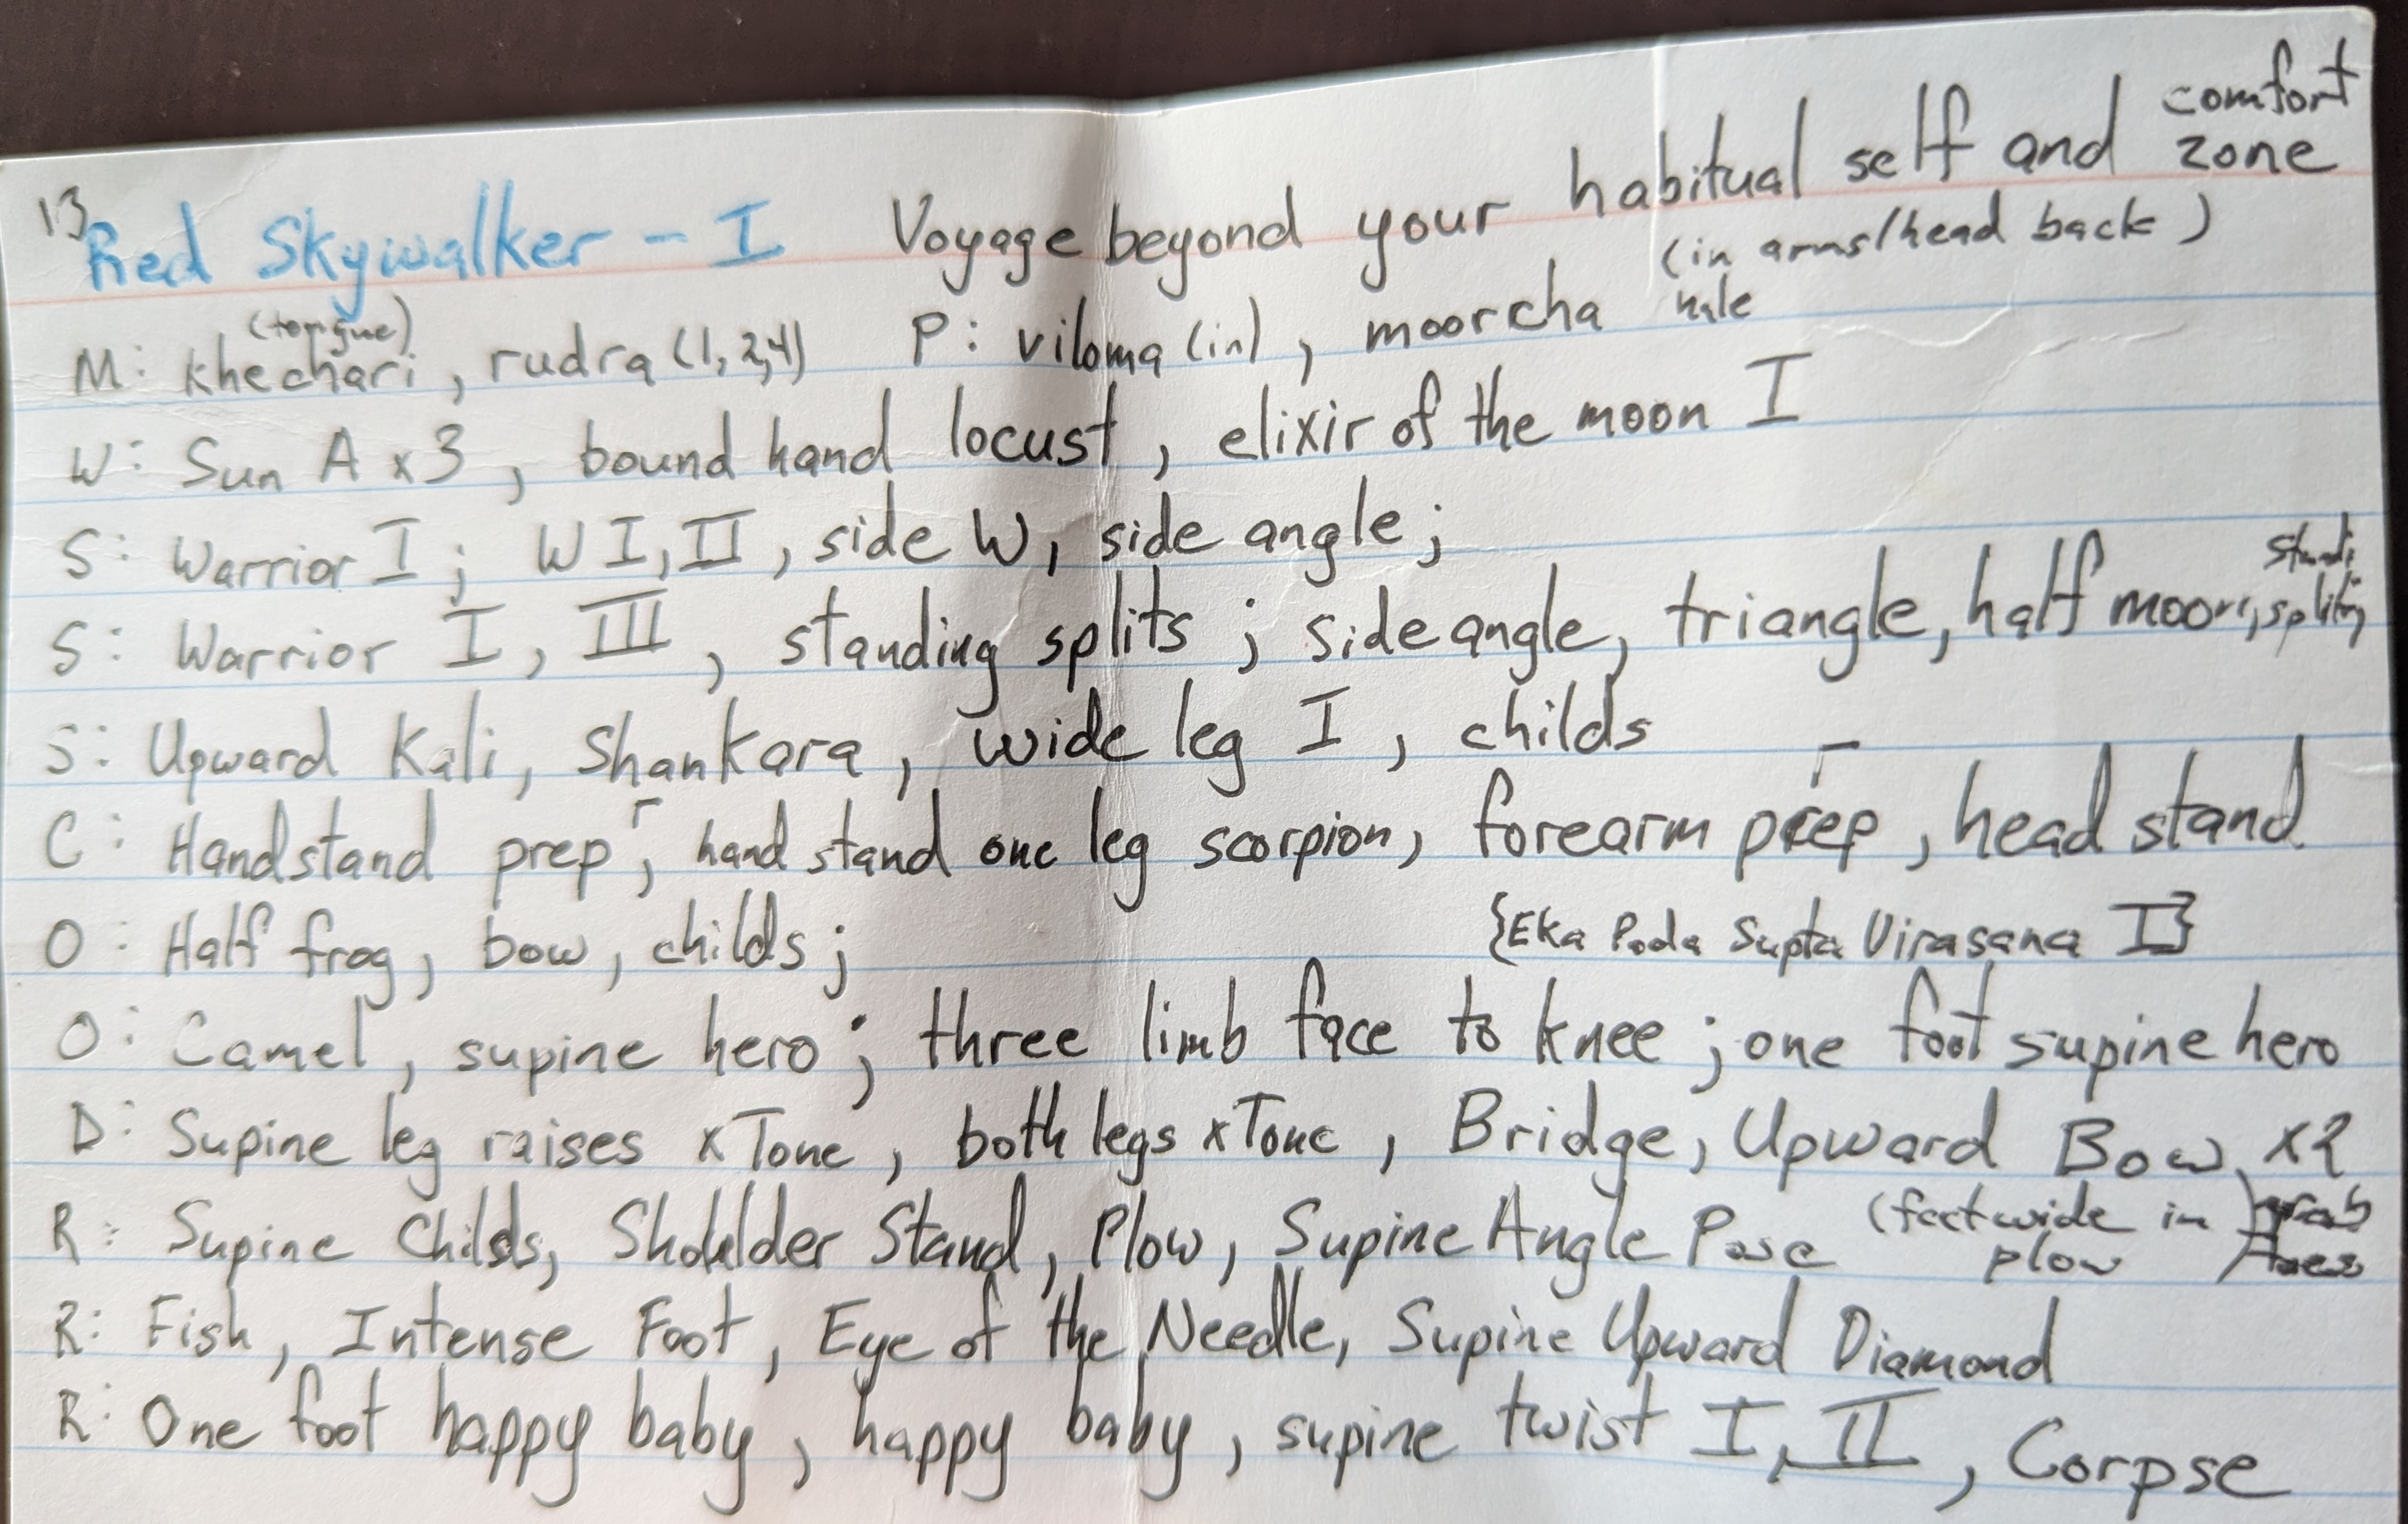 13
comfort
Red Skywalker - I Voyage beyond your habitual self and zone
(tongue) (in arms/head back)
M: khechari, rudra (1, 2, 4) P: viloma (in), moorcha hale
W: Sun A x 3, bound hand locust, elixir of the moon I
S: Warrior I; W I, II, side W, side angle;
S: Warrior I, III, standing splits; side angle, triangle, half moon, splits,
S: Upward Kali, Shankara, wide leg I, childs
C: Handstand prep, hand stand one leg scorpion, forearm prep, head stand
O: Half frog, bow, childs; {Eka Pada Supta Virasana I}
O: Camel, supine hero; three limb face to knee; one foot supine hero
D: Supine leg raises x Tone, both legs x Tone, Bridge, Upward Bow x2
R: Supine Childs, Shoulder Stand, Plow, Supine Angle Pose (feet wide in plow) grab
R: Fish, Intense Foot, Eye of the Needle, Supine Upward Diamond
R: One foot happy baby, happy baby, supine twist I, II, Corpse